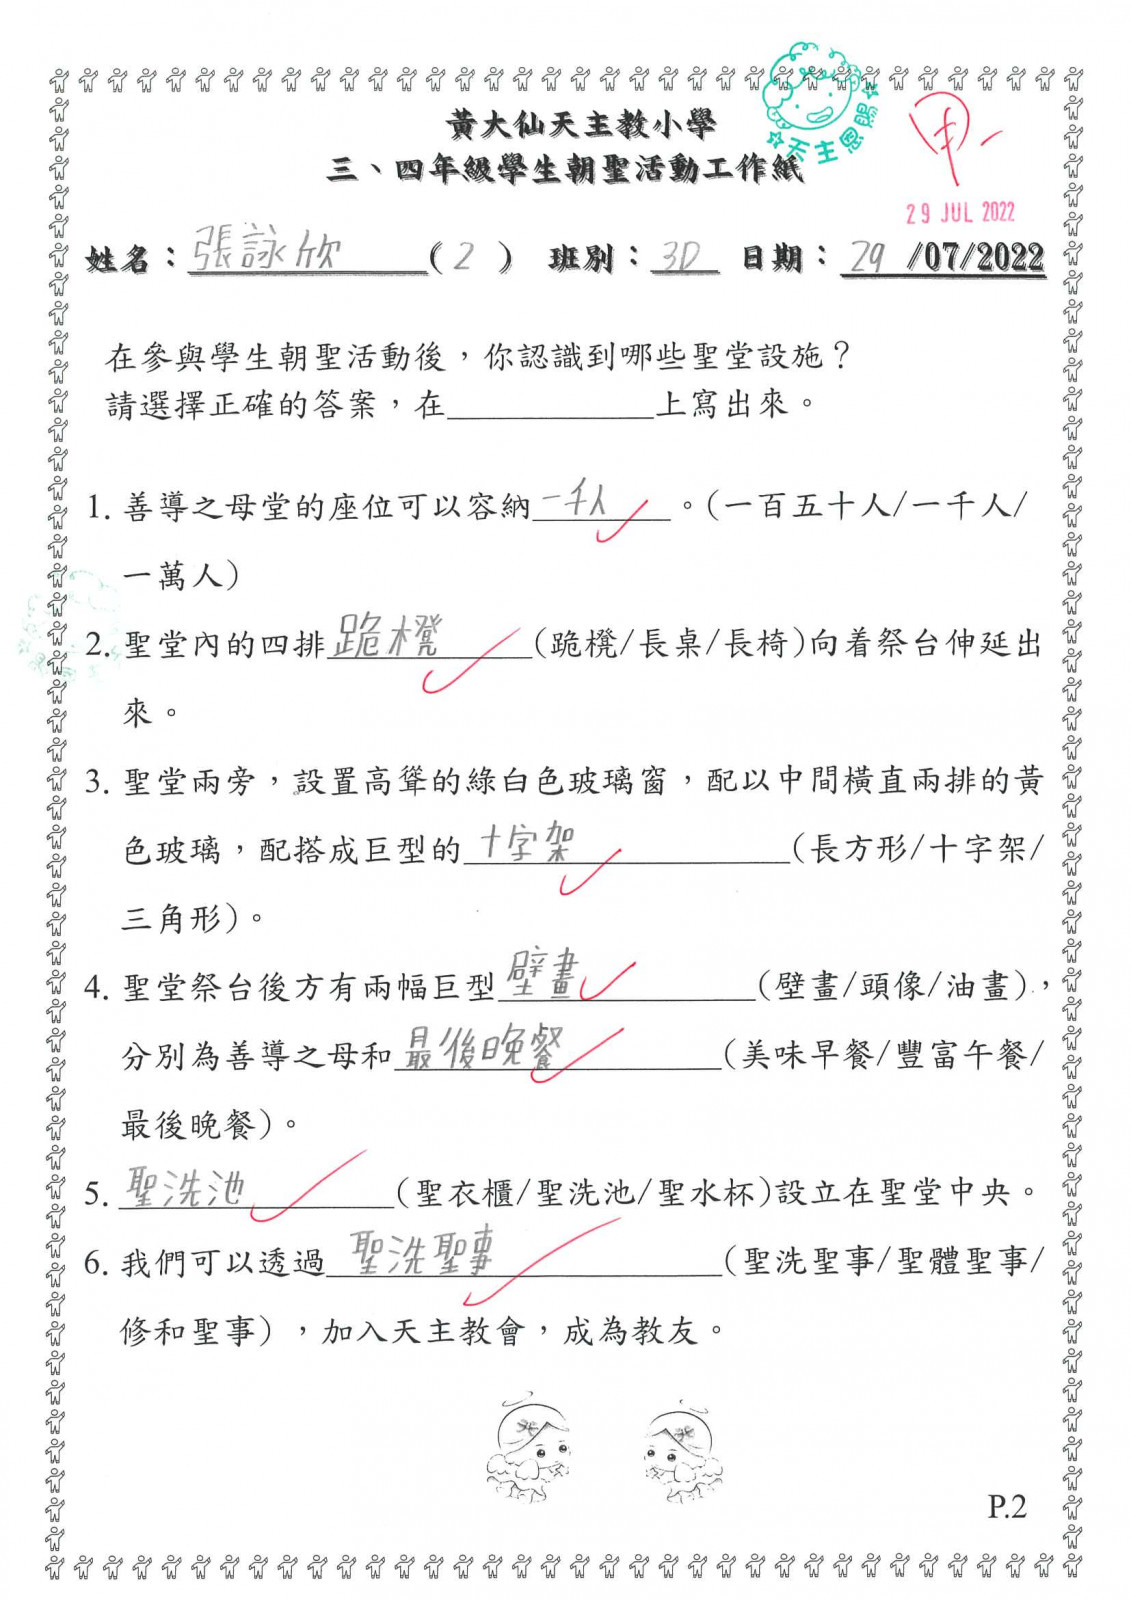 黃大仙天主教小學
三、四年級學生朝聖活動工作紙
☆天主恩賜☆
甲-
29 JUL 2022
姓名：張詠欣(2) 班別：3D 日期：29/07/2022
在參與學生朝聖活動後，你認識到哪些聖堂設施？
請選擇正確的答案，在____________上寫出來。
1. 善導之母堂的座位可以容納一千人。(一百五十人/一千人/
一萬人)
2. 聖堂內的四排跪櫈(跪櫈/長桌/長椅)向着祭台伸延出
來。
3. 聖堂兩旁，設置高聳的綠白色玻璃窗，配以中間橫直兩排的黃
色玻璃，配搭成巨型的十字架(長方形/十字架/
三角形)。
4. 聖堂祭台後方有兩幅巨型壁畫(壁畫/頭像/油畫)，
分別為善導之母和最後晚餐(美味早餐/豐富午餐/
最後晚餐)。
5. 聖洗池(聖衣櫃/聖洗池/聖水杯)設立在聖堂中央。
6. 我們可以透過聖洗聖事(聖洗聖事/聖體聖事/
修和聖事)，加入天主教會，成為教友。
P.2